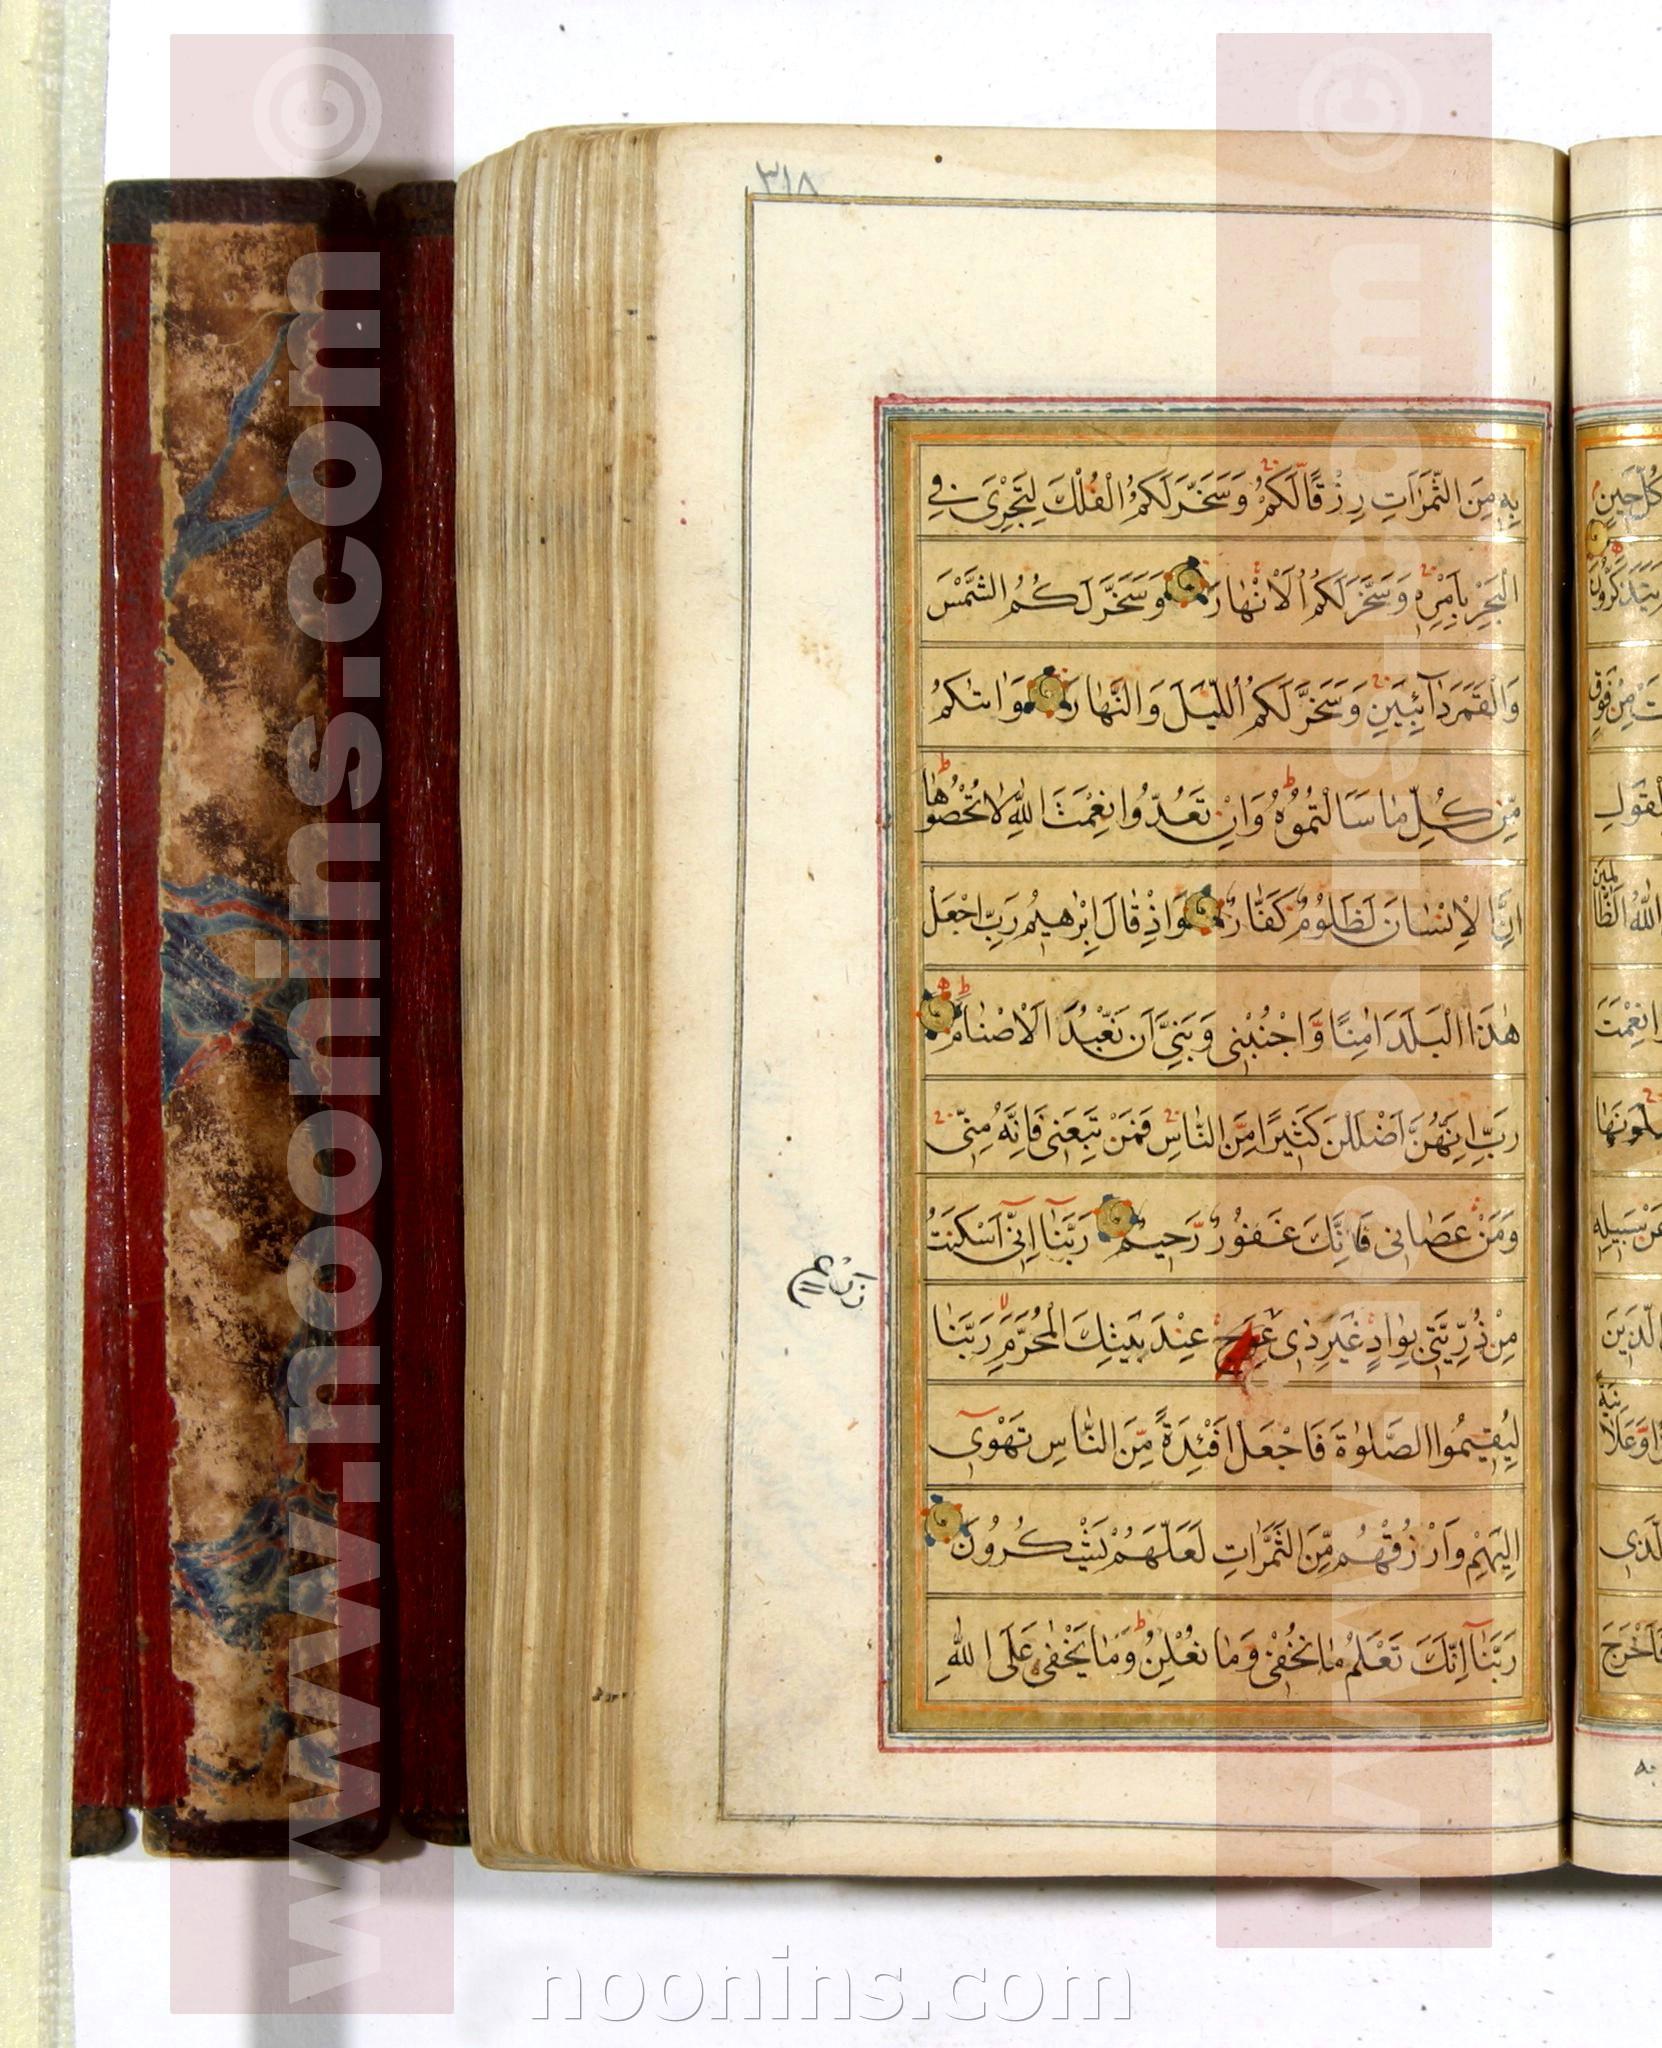 ٣١٨
بِهٖ مِنَ الثَّمَرَاتِ رِزْقًا لَكُمْ وَسَخَّرَ لَكُمُ الْفُلْكَ لِتَجْرِيَ فِي
الْبَحْرِ بِاَمْرِهٖ وَسَخَّرَ لَكُمُ الْاَنْهٰارَ وَسَخَّرَ لَكُمُ الشَّمْسَ
وَالْقَمَرَ دٰآئِبَيْنِ وَسَخَّرَ لَكُمُ اللَّيْلَ وَالنَّهٰارَ وَاٰتٰيكُمْ
مِنْ كُلِّ مٰا سَاَلْتُمُوهُ وَاِنْ تَعُدُّوا نِعْمَتَ اللّٰهِ لاٰ تُحْصُوهٰا
اِنَّ الْاِنْسٰانَ لَظَلُومٌ كَفّٰارٌ وَاِذْ قٰالَ اِبْرٰهِيمُ رَبِّ اجْعَلْ
هٰذَا الْبَلَدَ اٰمِنًا وَاجْنُبْنِي وَبَنِيَّ اَنْ نَعْبُدَ الْاَصْنٰامَ
رَبِّ اِنَّهُنَّ اَضْلَلْنَ كَثِيرًا مِنَ النّٰاسِ فَمَنْ تَبِعَنِي فَاِنَّهُ مِنِّي
وَمَنْ عَصٰانِي فَاِنَّكَ غَفُورٌ رَحِيمٌ رَبَّنٰا اِنِّي اَسْكَنْتُ
مِنْ ذُرِّيَّتِي بِوٰادٍ غَيْرِ ذِي عِنْدَ بَيْتِكَ الْمُحَرَّمِ رَبَّنٰا
لِيُقِيمُوا الصَّلٰوةَ فَاجْعَلْ اَفْئِدَةً مِنَ النّٰاسِ تَهْوِي
اِلَيْهِمْ وَارْزُقْهُمْ مِنَ الثَّمَرٰاتِ لَعَلَّهُمْ يَشْكُرُونَ
رَبَّنٰا اِنَّكَ تَعْلَمُ مٰا نُخْفِي وَمٰا نُعْلِنُ وَمٰا يَخْفٰى عَلَى اللّٰهِ
كُلَّ حِينٍ
يَتَذَكَّرُونَ
مِنْ فَوْقِ
اللّٰهُ الظّٰالِمِينَ
نِعْمَتَ
عَنْ سَبِيلِهِ
الَّذِينَ
الَّذِي
فَاَخْرَجَ
www.noonins.com ©
www.noonins.com ©
noonins.com